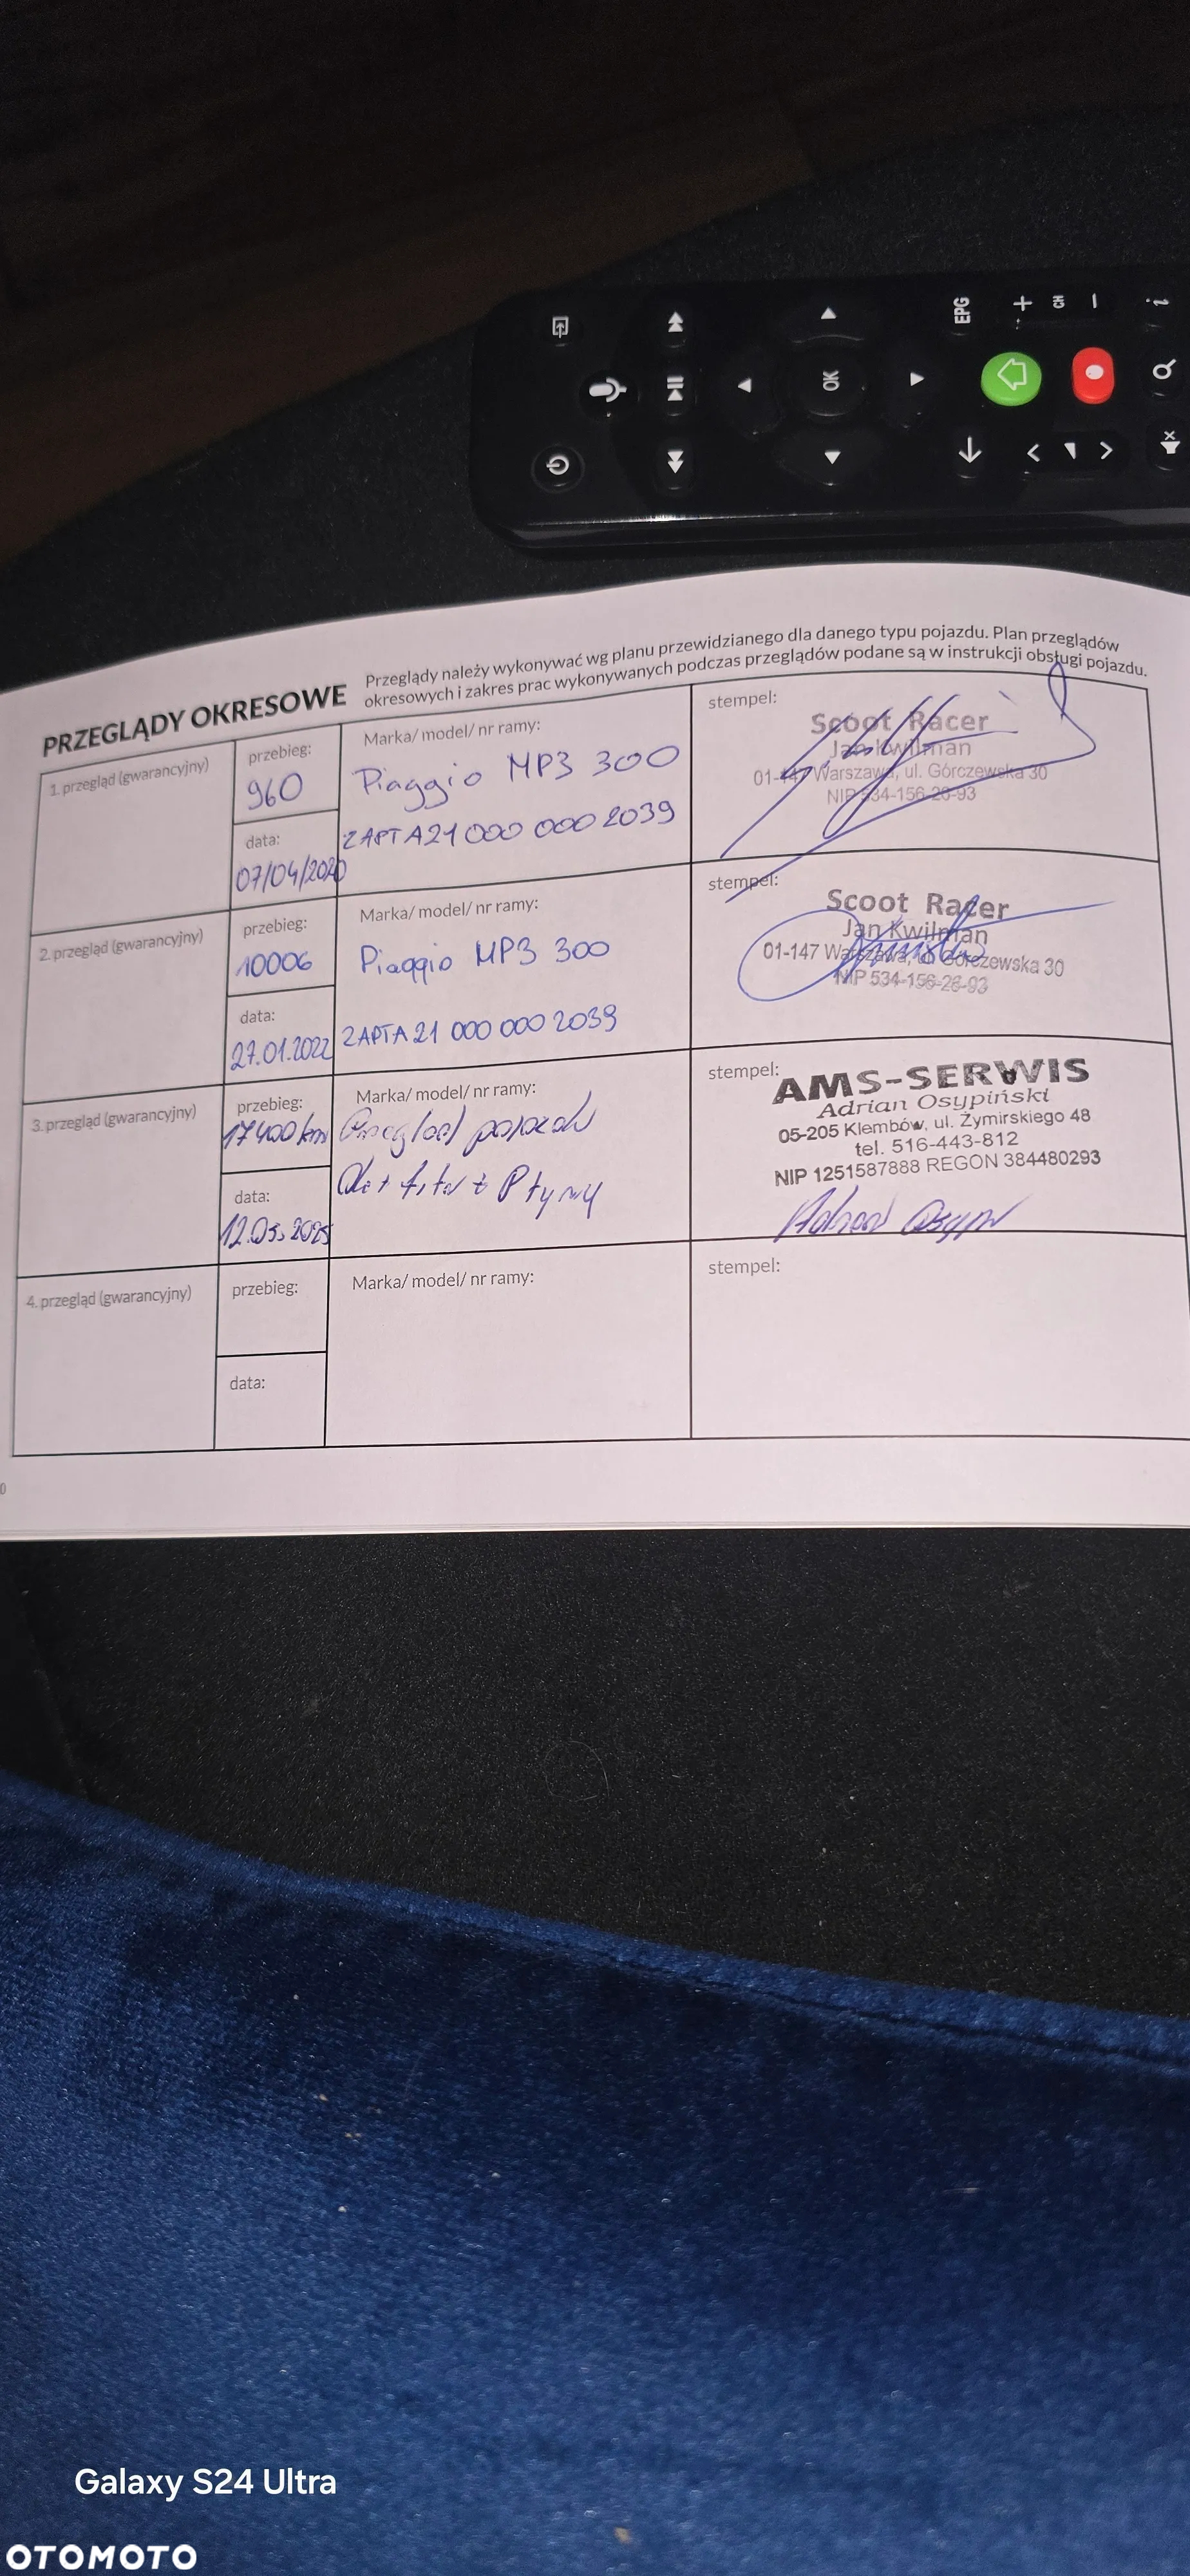 EPG
+
CH
−
OK
PRZEGLĄDY OKRESOWE
Przeglądy należy wykonywać wg planu przewidzianego dla danego typu pojazdu. Plan przeglądów
okresowych i zakres prac wykonywanych podczas przeglądów podane są w instrukcji obsługi pojazdu.
1. przegląd (gwarancyjny)
przebieg:
960
data:
07/04/2020
Marka/ model/ nr ramy:
Piaggio MP3 300
ZAPTA21 000 000 2039
stempel:
Scoot Racer
Jan Kwilman
01-147 Warszawa, ul. Górczewska 30
NIP 534-156-26-93
2. przegląd (gwarancyjny)
przebieg:
10006
data:
27.01.2022
Marka/ model/ nr ramy:
Piaggio MP3 300
ZAPTA21 000 000 2039
stempel:
Scoot Racer
Jan Kwilman
01-147 Warszawa, ul. Górczewska 30
NIP 534-156-26-93
3. przegląd (gwarancyjny)
przebieg:
17400 km
data:
12.05.2025
Marka/ model/ nr ramy:
Przegląd pojazdu
Płyny
stempel:
AMS-SERWIS
Adrian Osypiński
05-205 Klembów, ul. Żymirskiego 48
tel. 516-443-812
NIP 1251587888 REGON 384480293
4. przegląd (gwarancyjny)
przebieg:
data:
Marka/ model/ nr ramy:
stempel:
Galaxy S24 Ultra
OTOMOTO